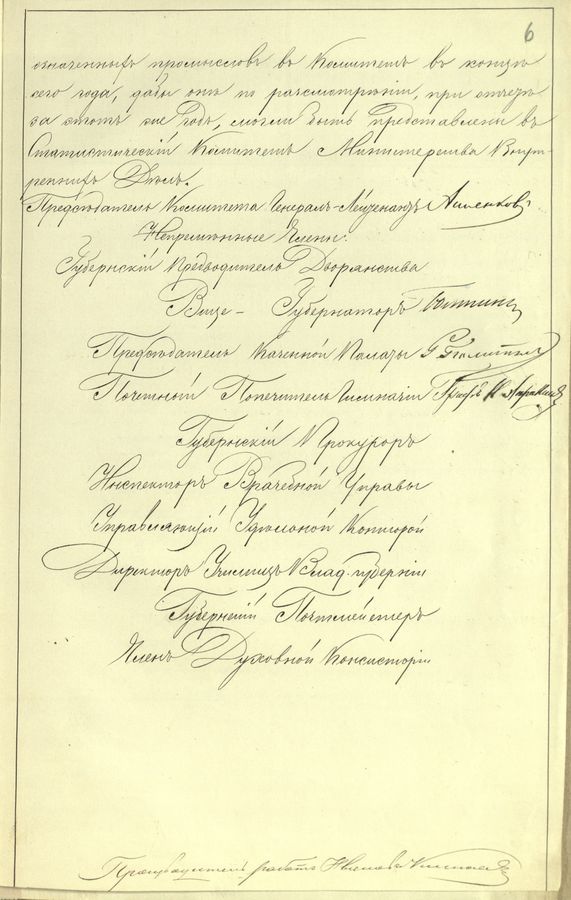 6
означенныхъ промысловъ въ Комитетъ въ концѣ
сего года, дабы онѣ по разсмотрѣніи, при отчетѣ
за этотъ же годъ, могли быть представлены въ
Статистическій Комитетъ Министерства Внут-
реннихъ Дѣлъ.
Предсѣдатель Комитета Генералъ-Лейтенантъ Анненковъ
Непремѣнные Члены:
Губернскій Предводитель Дворянства
Вице-Губернаторъ
Предсѣдатель Казенной Палаты
Почетный Попечитель Гимназіи Графъ
Губернскій Прокуроръ
Инспекторъ Врачебной Управы
Управляющій Удѣльной Конторой
Директоръ Училищъ Влад. губерніи
Губернскій Почтмейстеръ
Членъ Духовной Консисторіи
Производитель работъ